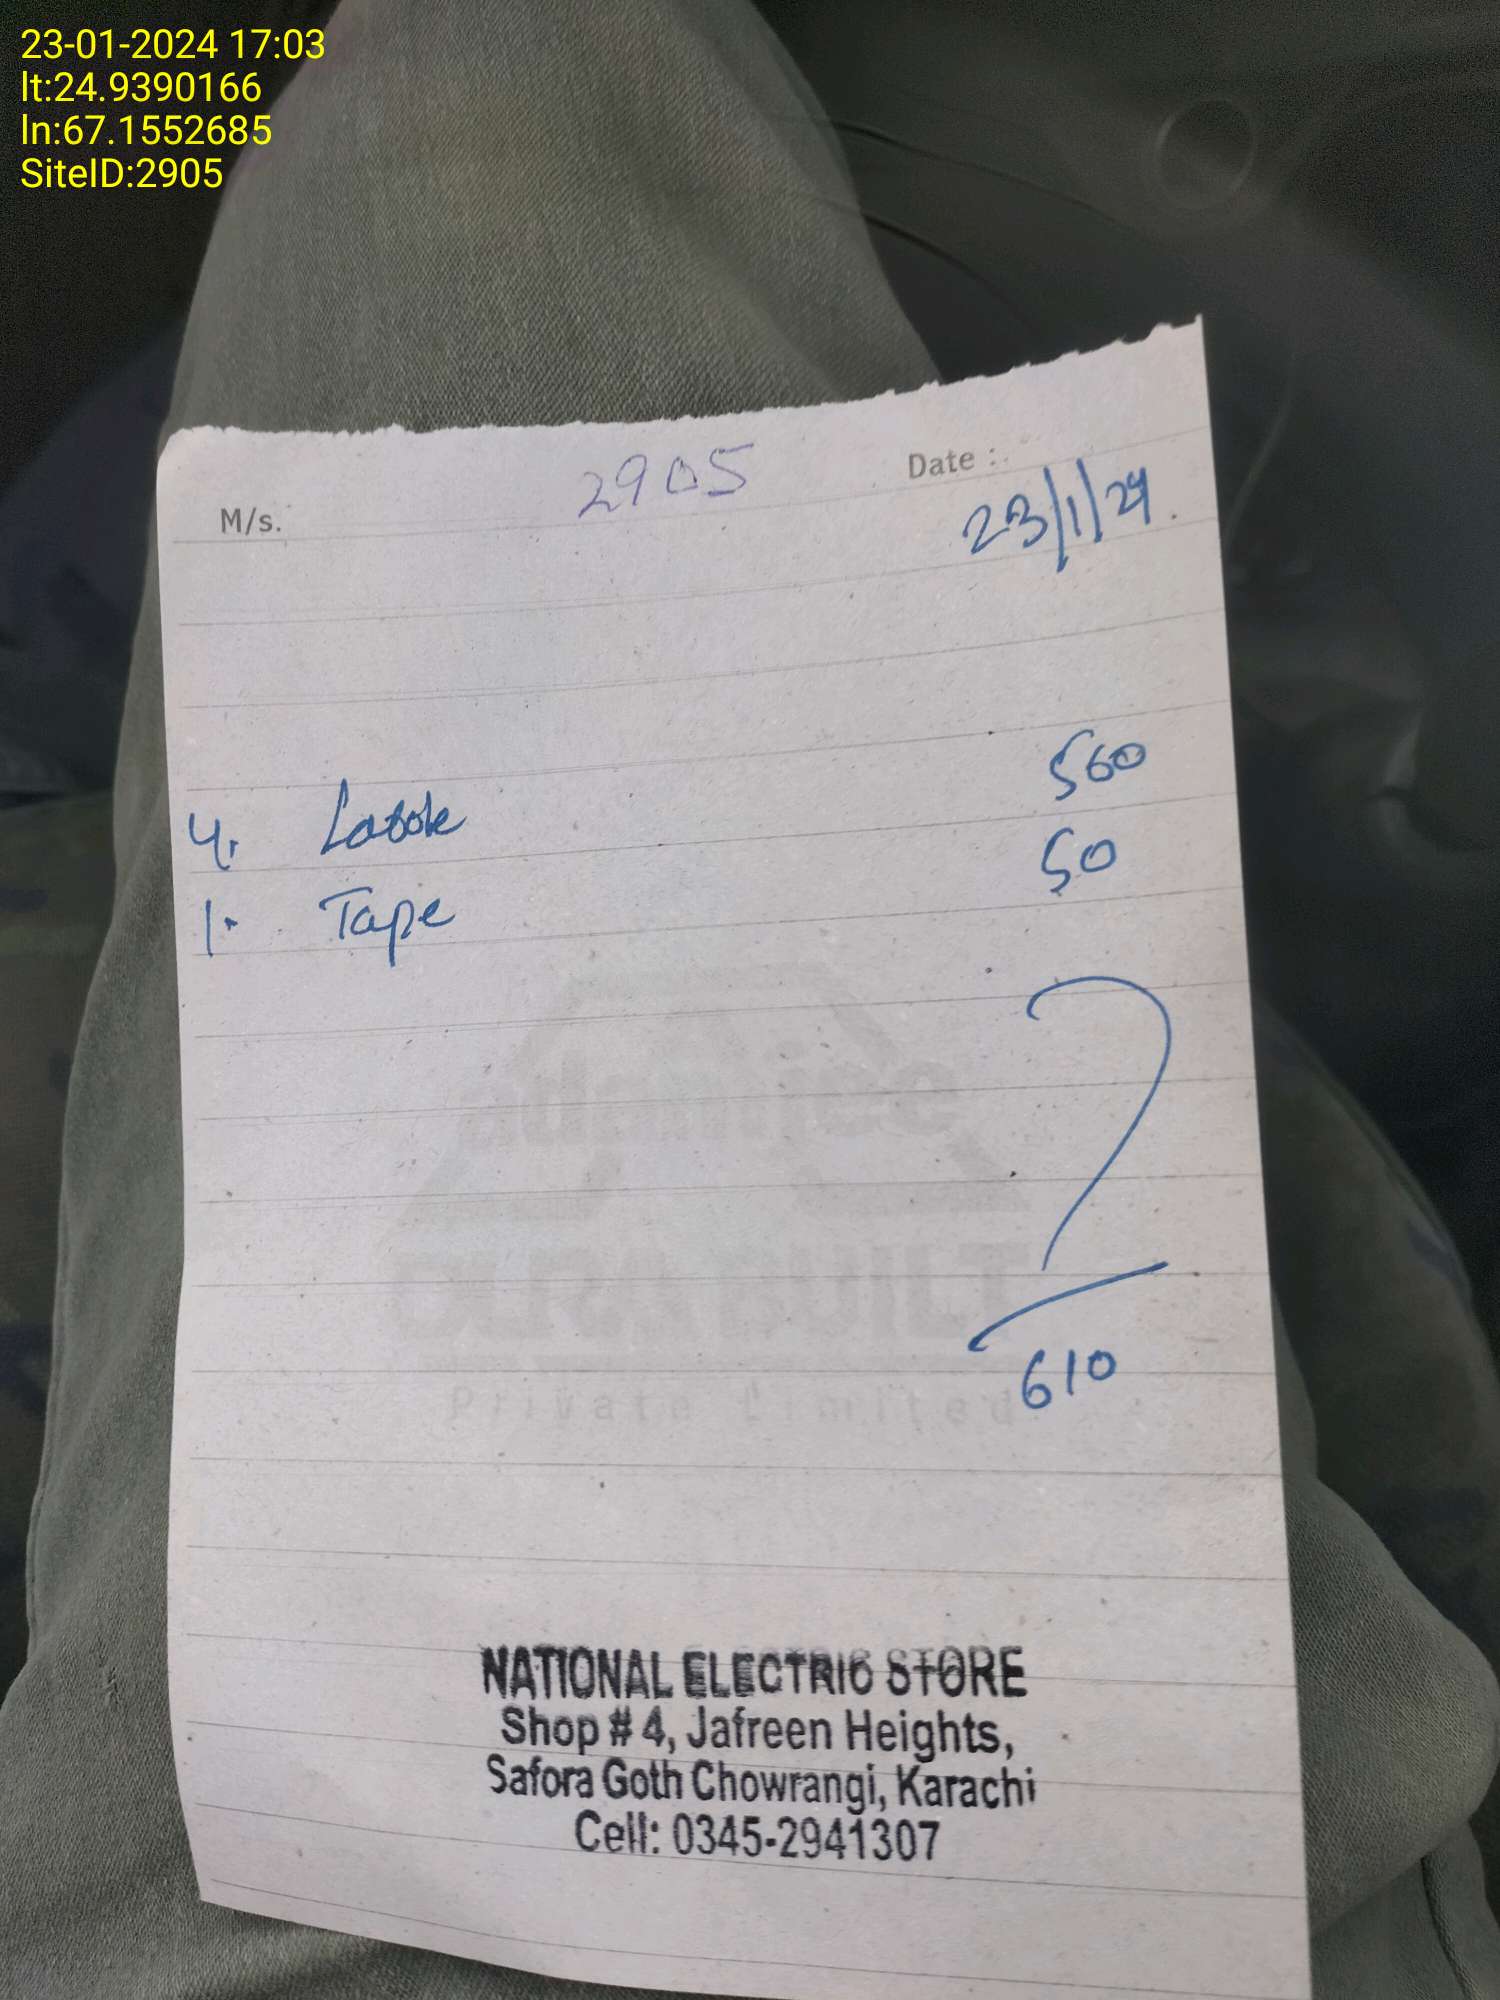 23-01-2024 17:03
lt:24.9390166
ln:67.1552685
SiteID:2905
2905
Date :
M/s.
23/1/24
4. 560
1. Tape 50
610
adamjee
DURABUILT
Private Limited
NATIONAL ELECTRIC STORE
Shop # 4, Jafreen Heights,
Safora Goth Chowrangi, Karachi
Cell: 0345-2941307